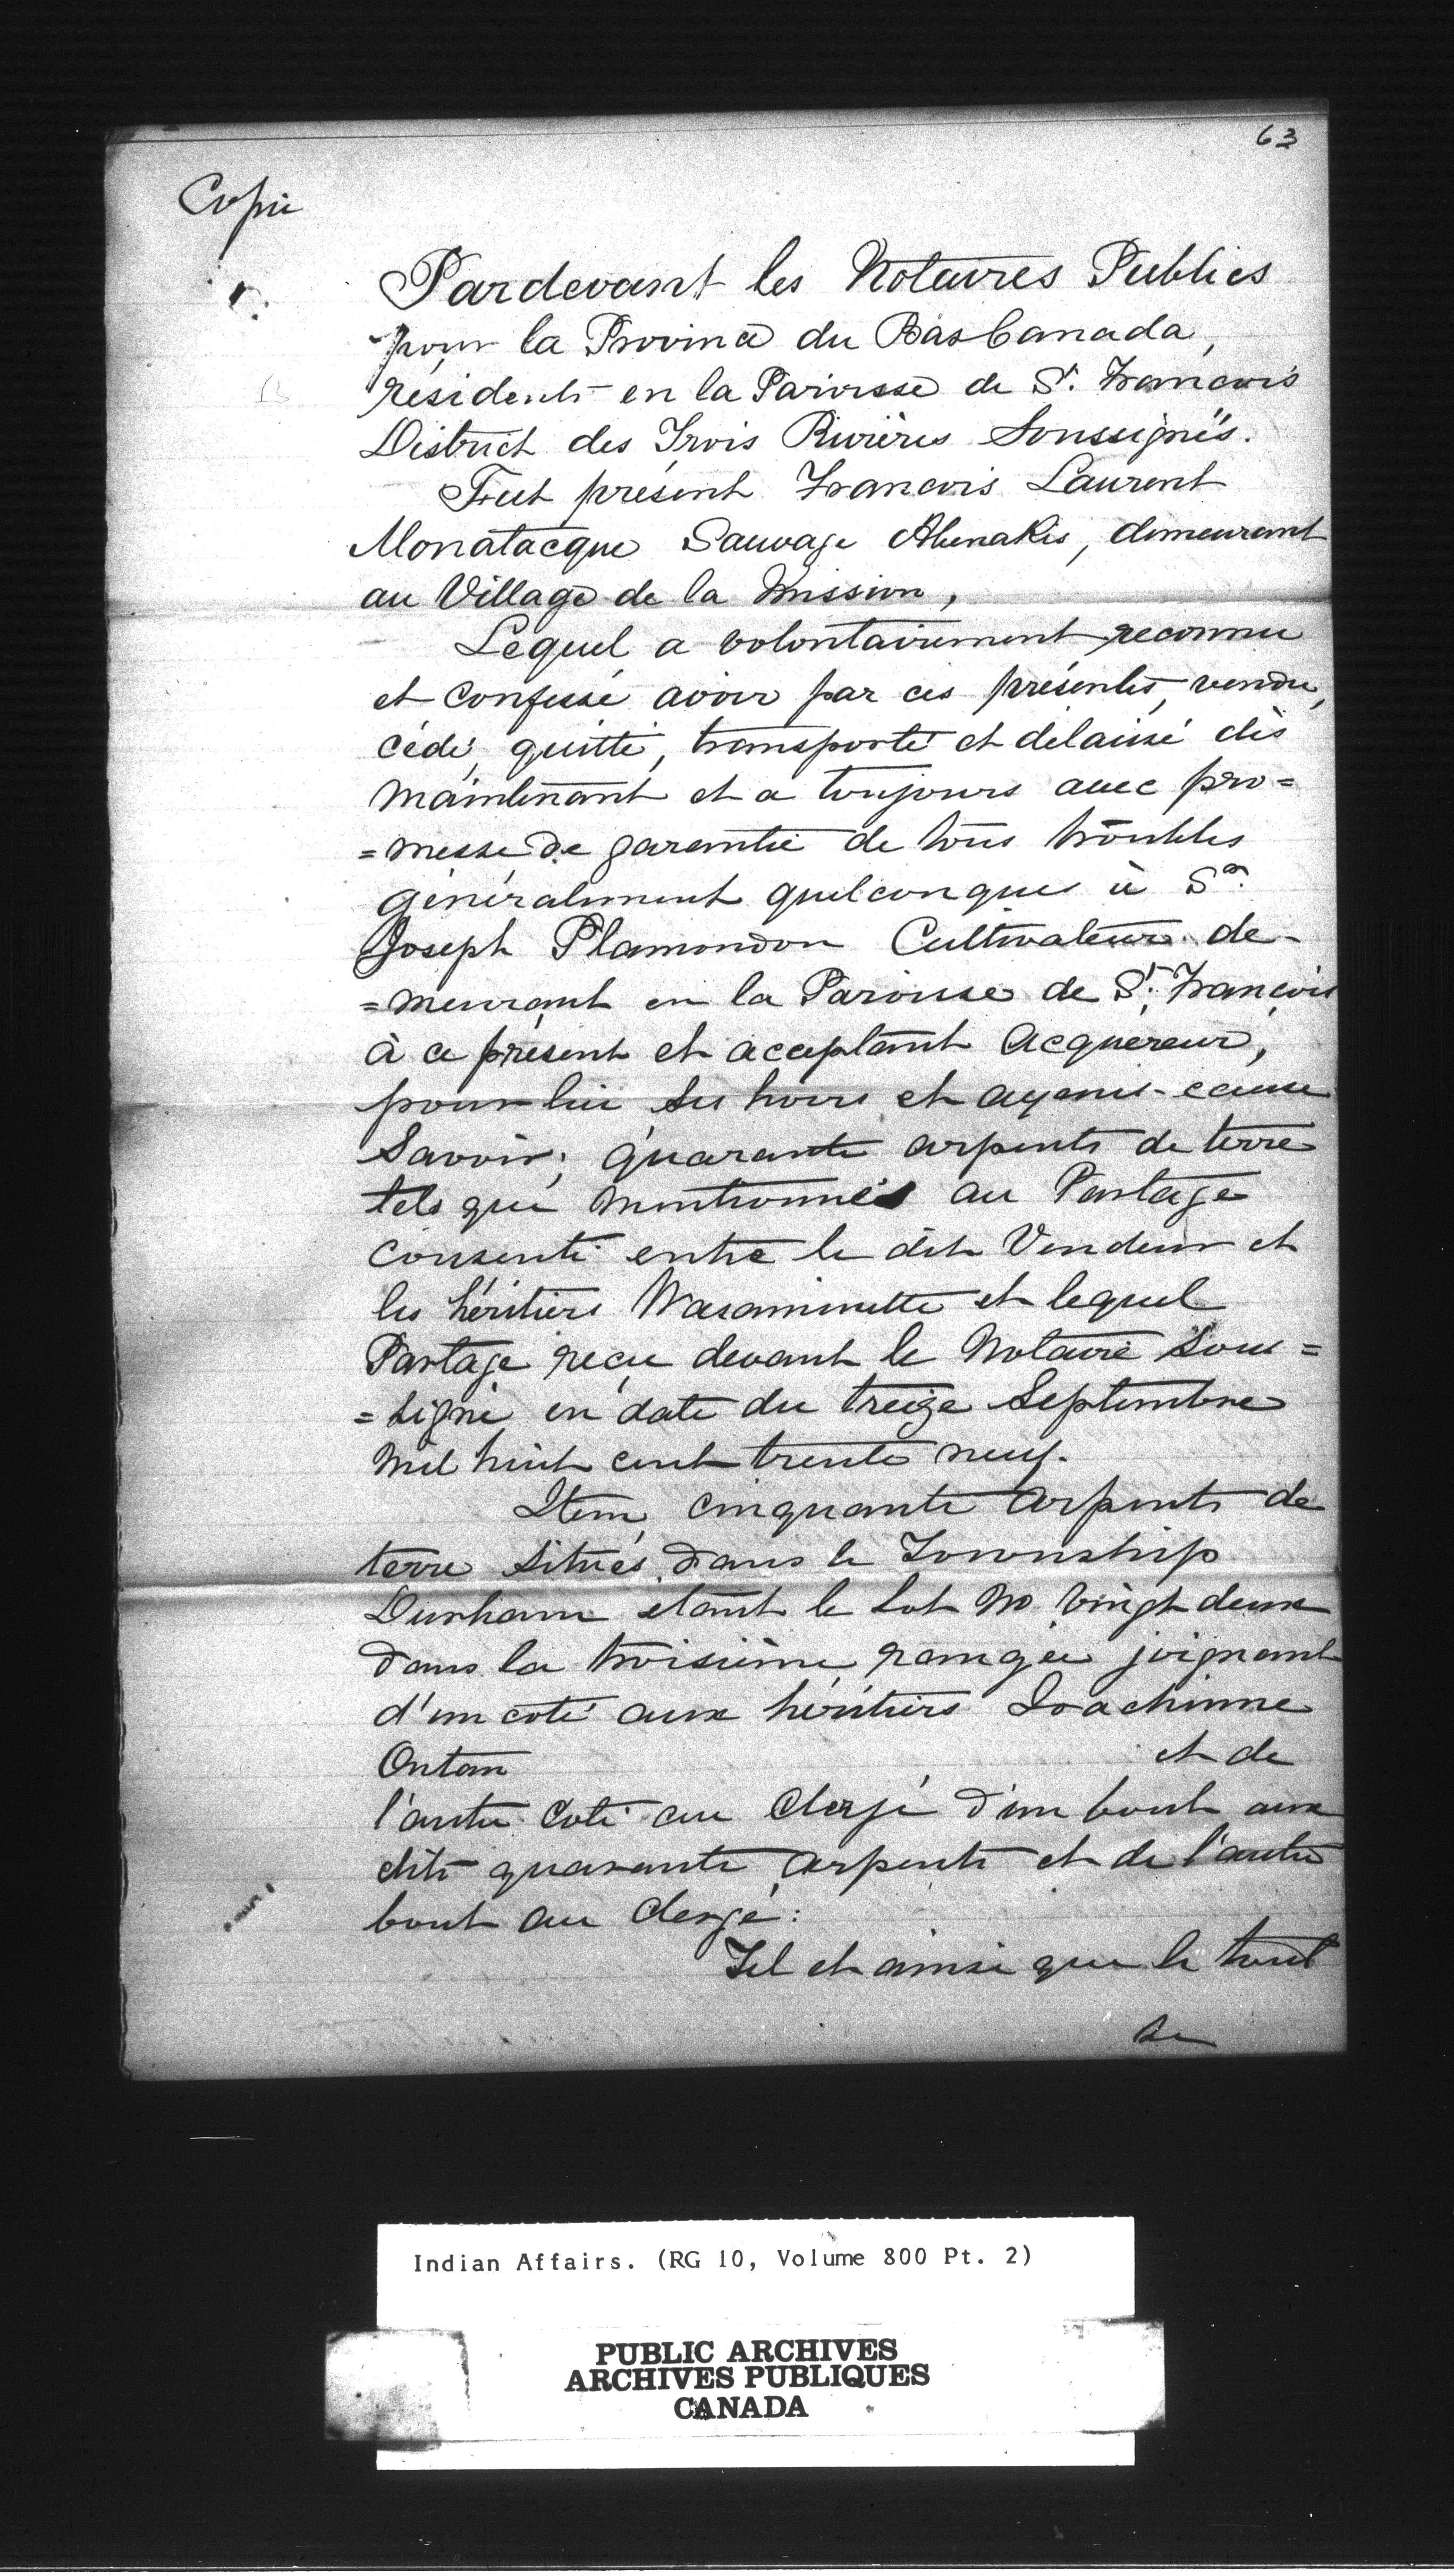 63
Copie
Pardevant les Notaires Publics
pour la Province du Bas Canada,
résidents en la Paroisse de St. Francois
District des Trois Rivières Soussignés.
Fut présent Francois Laurent
Monatacque Sauvage Abenakis, demeurant
au Village de la Mission,
Lequel a volontairement reconnu
et confessé avoir par ces présentes, vendu,
cédé, quitté, transporté et délaissé dès
maintenant et a toujours avec pro=
=messe de garantie de tous troubles
généralement quelconques à Sr.
Joseph Plamondon Cultivateur de-
=meurant en la Paroisse de St. François
à ce présent et acceptant acquereur,
pour lui ses hoirs et ayans-cause
Savoir; quarante arpents de terre
tels que mentionnés au Partage
consenti entre le dit Vendeur et
les héritiers Wasaminette et lequel
Partage reçu devant le Notaire sous=
=signé en date du treize Septembre
mil huit cent trente neuf.
Item, cinquante arpents de
terre situés dans le Township
Durham étant le Lot No vingt deux
dans la troisième rangée joignant
d'un coté aux héritiers Joachimme
Ontan et de
l'autre coté au Clergé d'un bout aux
dits quarante arpents et de l'autre
bout au clergé:
Tel et ainsi que le tout
se
Indian Affairs. (RG 10, Volume 800 Pt. 2)
PUBLIC ARCHIVES
ARCHIVES PUBLIQUES
CANADA